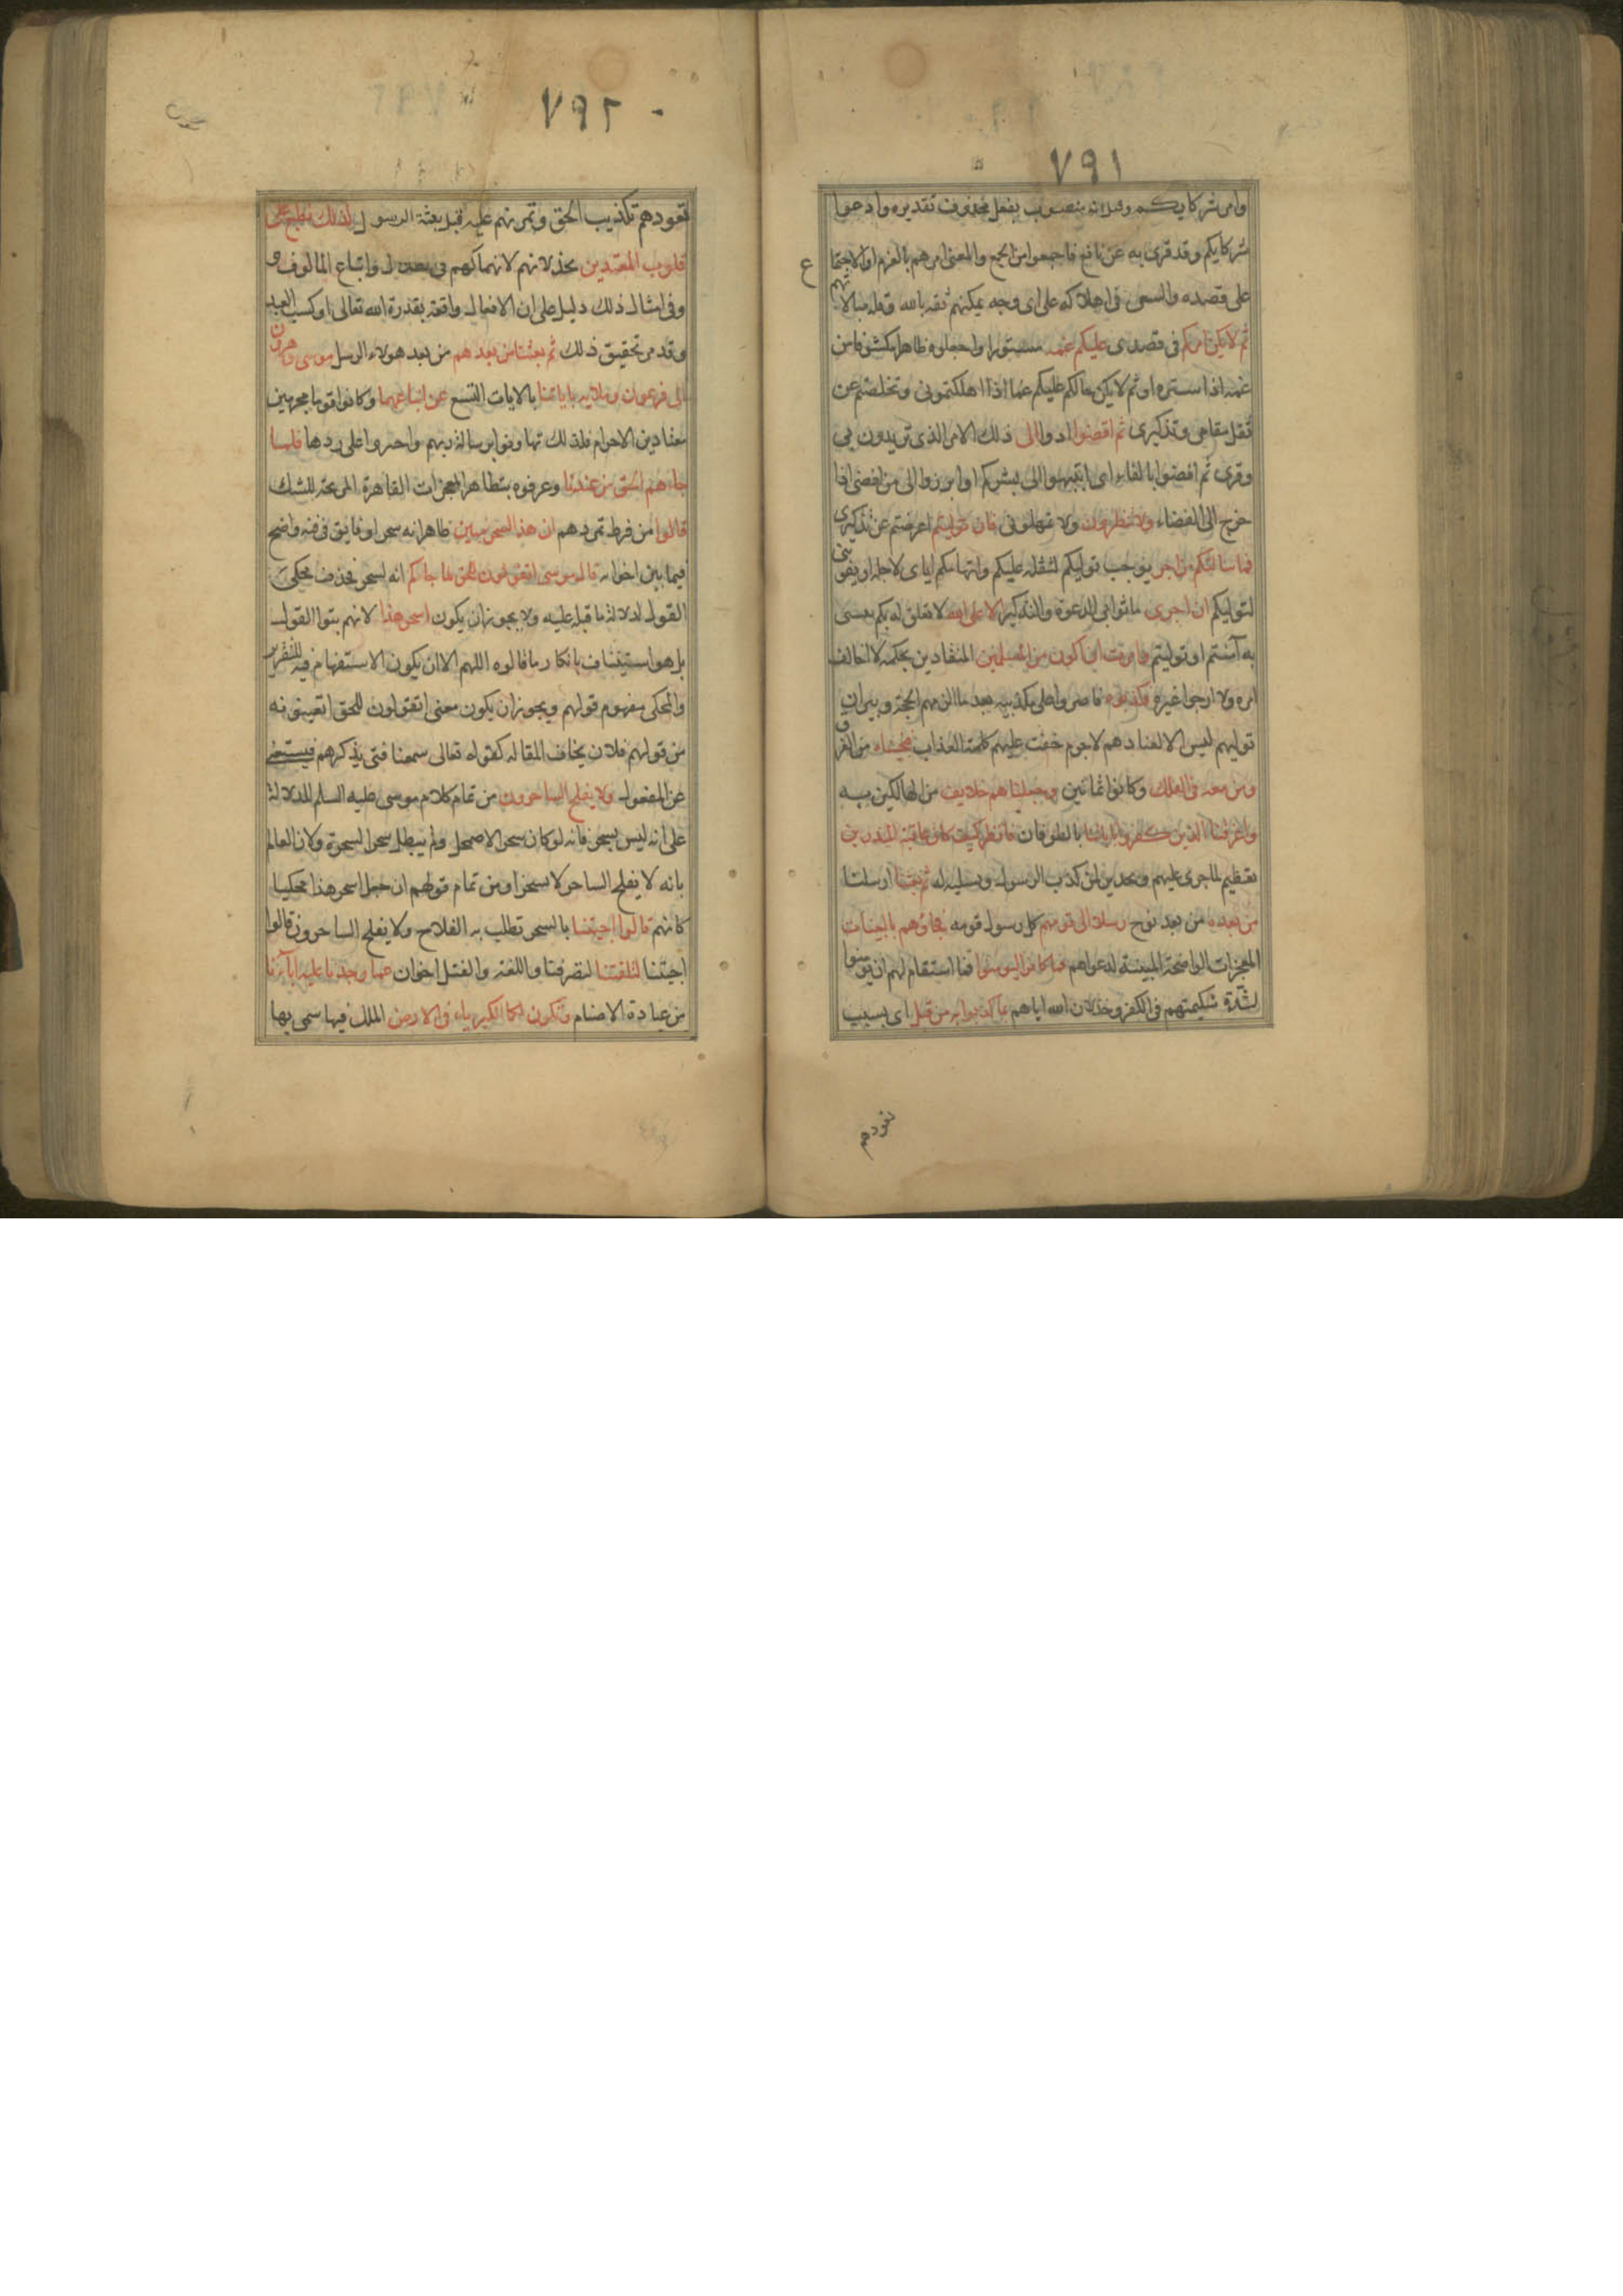 ٧٩١
وامر شركايكم وقيل انه منصوب بفعل محذوف تقديره وادعوا
شركايكم وقد قرى به عن نافع فاجمعوا من الجمع والمعنى امرهم بالعزم او الاجتما
ع
على قصده والسعى فى اهلاكه على اى وجه يمكنهم ثقه بالله وقله مبالا
تهم
ثم لا يكن امركم فى قصدى عليكم غمه مستورا واجعلوه ظاهرا مكشوفا من
غمه اذا ستره او ثم لا يكن حالكم عليكم غما اذا اهلكتمونى وتخلصتم عن
ثقل مقامى وتذكيرى ثم اقضوا ادوا الى ذلك الامر الذى تريدون بى
وقرى ثم افضوا بالفاء اى انتهوا الى بشركم او ابرزوا الى من افضى اذا
خرج الى الفضاء ولا تنظرون ولا تمهلونى فان توليتم اعرضتم عن تذكيرى
فما سالتكم من اجر يوجب توليكم لثقله عليكم واتهامكم اياى لاجله او يفو
تنى
لتوليكم ان اجرى ما ثوابى للدعوة والتذكير الا على الله لا تعلق له بكم يعنى
به آمنتم او توليتم وامرت ان اكون من المسلمين المنقادين بحكمه لا اخالف
امره ولا ارجوا غيره فكذبوه فاصروا على تكذيبه بعد ما الزمهم الحجة وبين ان
توليهم ليس الا لعنادهم لا جرم حقت عليهم كلمة العذاب فنجيناه من الغر
ق
ومن معه فى الفلك وكانوا ثمانين وجعلناهم خلايف من الهالكين به
واغرقنا الذين كفروا باياتنا بالطوفان فانظر كيف كان عاقبة المنذرين
تعظيم لما جرى عليهم وتحذير لمن كذب الرسول وتسليه له ثم بعثنا ارسلنا
من بعده من بعد نوح رسلا الى قومهم كل رسول قومه فجاؤهم بالبينات
المعجزات الواضحة المبينة لدعواهم فما كانوا ليومنوا فما استقام لهم ان يومنوا
لشدّة شكيمتهم فى الكفر وخذلان الله اياهم بما كذبوا به من قبل اى بسبب
تعودهم
٧٩٢
تعودهم تكذيب الحق وتمرنهم عليه قبل بعثة الرسول كذلك نطبع على
قلوب المعتدين بخذلانهم لانهماكهم فى الضلال واتباع المالوف و
وفى امثال ذلك دليل على ان الافعال واقعة بقدرة الله تعالى او كسب العبد
وقد مر تحقيق ذلك ثم بعثنا من بعدهم من بعد هولاء الرسل موسى وهرون
الى فرعون وملايه باياتنا بالايات التسع عن اتباعهما وكانوا قوما مجرمين
معتادين الاجرام فلذلك تهاونوا برسالة ربهم واجتروا على ردها فلما
جاءهم الحق من عندنا وعرفوه بتظاهر المعجزات القاهرة المزيحة للشك
قالوا من فرط تمردهم ان هذا لسحر مبين ظاهر انه سحر او فايق فى فنه واضح
فيما بين اخواته قال موسى اتقولون للحق لما جاءكم انه لسحر فحذف محكى
القول لدلالة ما قبله عليه ولا يجوز ان يكون اسحر هذا لانهم بتوا القول
بل هو استيناف بانكار ما قالوه اللهم الا ان يكون الاستفهام فيه للتقرير
والمحكى مفهوم قولهم ويجوز ان يكون معنى اتقولون للحق اتعيبونه
من قولهم فلان يخاف المقالة كقوله تعالى سمعنا فتى يذكرهم فيستغنى
عن المفعول ولا يفلح الساحرون من تمام كلام موسى عليه السلم للدلالة
على انه ليس بسحر فانه لو كان سحر الاضمحل ولم يبطل سحر السحرة ولان العالم
بانه لا يفلح الساحر لا يسحر او من تمام قولهم ان جعل اسحر هذا محكيا
كانهم قالوا اجيتنا بالسحر تطلب به الفلاح ولا يفلح الساحرون قالوا
اجيتنا لتلفتنا لتصرفنا واللفت والفتل اخوان عما وجدنا عليه اباءنا
من عبادة الاصنام وتكون لكما الكبرياء فى الارض الملك فيها سمى بها